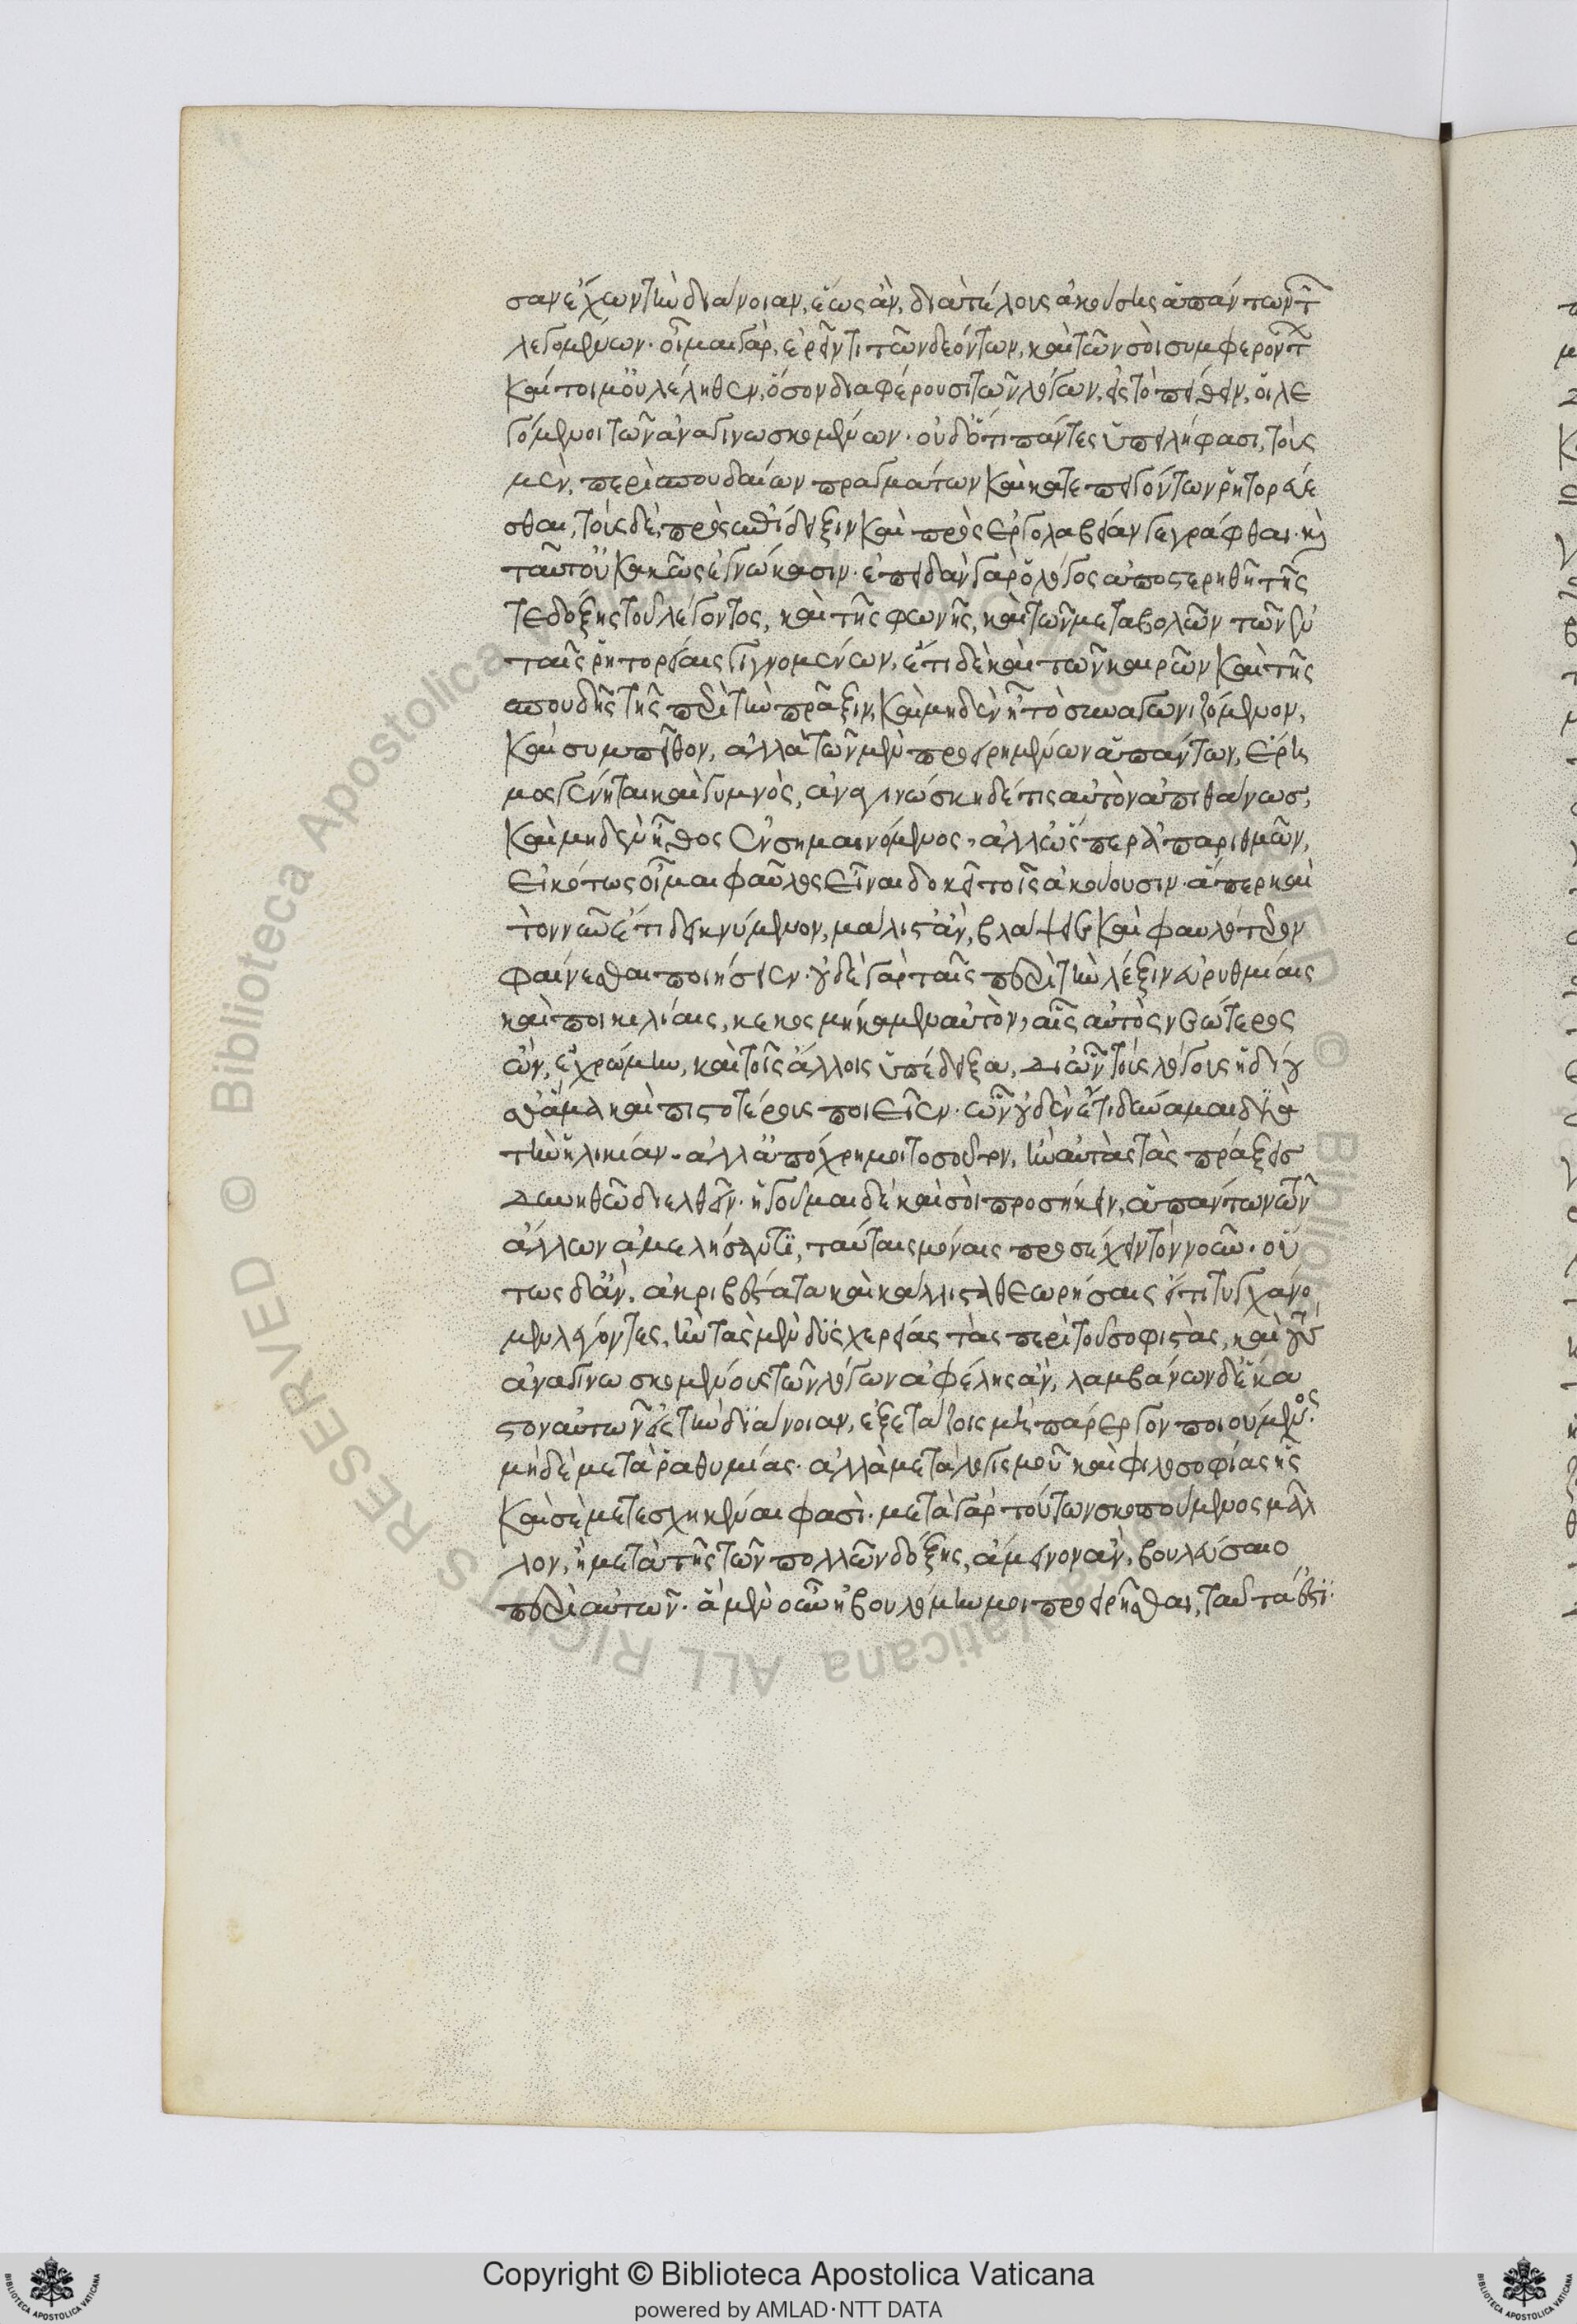 σαν ἔχων τὴν διάνοιαν, ἕως ἂν, διὰ τέλους ἀκούσῃς ἁπάντων τῶν
λεγομένων· οἶμαι γὰρ, ἐρεῖν τι τῶν δεόντων, καὶ τῶν σοὶ συμφερόντων
καίτοι μ' οὐ λέληθεν, ὅσον διαφέρουσι τῶν λόγων, εἰς τὸ πείθειν, οἱ λε
γόμενοι τῶν ἀναγινωσκομένων· οὐδ' ὅτι πάντες ὑπειλήφασι, τοὺς
μὲν, περὶ σπουδαίων πραγμάτων καὶ κατεπειγόντων ῥητορεύε
σθαι, τοὺς δὲ, πρὸς ἐπίδειξιν καὶ πρὸς ἐργολαβείαν γεγράφθαι· καὶ
ταῦτ' οὐ κακῶς ἐγνώκασιν· ἐπειδὰν γὰρ ὁ λόγος ἀποστερηθῇ τῆς
τε δόξης τοῦ λέγοντος, καὶ τῆς φωνῆς, καὶ τῶν μεταβολῶν τῶν ἐν
ταῖς ῥητορείαις γιγνομένων, ἔτι δὲ καὶ τῶν καιρῶν καὶ τῆς
σπουδῆς τῆς περὶ τὴν πρᾶξιν, καὶ μηδὲν ᾖ τὸ συναγωνιζόμενον,
καὶ συμπεῖθον, ἀλλὰ τῶν μὲν προειρημένων ἁπάντων, ἔρη
μος γένηται καὶ γυμνὸς, ἀναγινώσκῃ δέ τις αὐτὸν ἀπιθάνως,
καὶ μηδὲν ἦθος ἐνσημαινόμενος, ἀλλ' ὥσπερ ἀπαριθμῶν,
εἰκότως οἶμαι φαῦλος εἶναι δοκεῖ τοῖς ἀκούουσιν· ἅπερ καὶ
τὸν νῦν ἐπιδεικνύμενον, μάλιστ' ἂν, βλάψειε καὶ φαυλότερον
φαίνεσθαι ποιήσειεν· οὐδὲ γὰρ ταῖς περὶ τὴν λέξιν εὐρυθμίαις
καὶ ποικιλίαις, κεκοσμήκαμεν αὐτὸν, αἷς αὐτὸς νεώτερος
ὢν, ἐχρώμην, καὶ τοῖς ἄλλοις ὑπέδειξα, δι' ὧν τοὺς λόγους ἡδίου
θ' ἅμα καὶ πιστοτέρους ποιεῖεν· ὧν οὐδὲν ἔτι δύναμαι διὰ
τὴν ἡλικίαν· ἀλλ' ἀπόχρη μοι τοσοῦτον, ἢν αὐτὰς τὰς πράξεις
δυνηθῶ διελθεῖν· ἡγοῦμαι δὲ καὶ σοὶ προσήκειν, ἁπάντων τῶν
ἄλλων ἀμελήσαντι, ταύταις μόναις προσέχειν τὸν νοῦν· οὕ
τως δ' ἂν, ἀκριβέστατα καὶ κάλλιστα θεωρήσαις εἴ τι τυγχάνο
μεν λέγοντες, ἢν τὰς μὲν δυσχερείας τὰς περὶ τοὺς σοφιστὰς, καὶ τοὺς
ἀναγινωσκομένους τῶν λόγων ἀφέλῃς ἂν, λαμβάνων δ' ἕκα
στον αὐτῶν εἰς τὴν διάνοιαν, ἐξετάζοις μὴ πάρεργον ποιούμενος·
μηδὲ μετὰ ῥαθυμίας· ἀλλὰ μετὰ λογισμοῦ καὶ φιλοσοφίας ἧς
καὶ σὲ μετεσχηκέναι φασὶ· μετὰ γὰρ τούτων σκοπούμενος μᾶλ
λον, ἢ μετὰ τῆς τῶν πολλῶν δόξης, ἄμεινον ἂν, βουλεύσαιο
περὶ αὐτῶν· ἃ μὲν οὖν ἠβουλόμην μοι προειρῆσθαι, ταῦτά ἐστι·